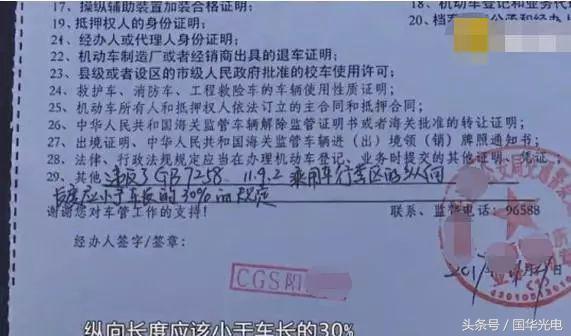 17、操纵辅助装置加装合格证明；
18、机动车登记和业务代
19、抵押权人的身份证明；
20、档
21、经办人或代理人身份证明；
22、机动车制造厂或者经销商出具的退车证明；
23、县级或者设区的市级人民政府批准的校车使用许可；
24、救护车、消防车、工程救险车的车辆使用性质证明；
25、机动车所有人和抵押权人依法订立的主合同和抵押合同；
26、中华人民共和国海关监管车辆解除监管证明书或者海关批准的转让证明；
27、出境证明、中华人民共和国海关监管车辆进（出）境领（销）牌照通知书；
28、法律、行政法规规定应当在办理机动车登记、业务时提交的其他证明、凭证
29、其他 违反了GB7258 11.9.2 乘用车行李区的纵向
长度应小于车长的30%的规定
谢谢您对车管工作的支持！
联系、监管电话：96588
经办人签字/签章：
CGS阴
纵向长度应该小于车长的30%
头条号 / 国华光电